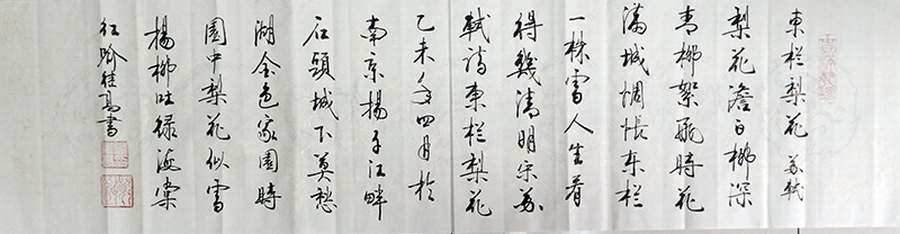 東栏梨花 苏軾
梨花澹白柳深
青柳絮飛時花
滿城惆悵东栏
一株雪人生看
得幾清明宋苏
軾詩東栏梨花
乙未年四月於
南京揚子江畔
石頭城下莫愁
湖金色家園時
園中梨花似雪
楊柳吐绿
桂高書